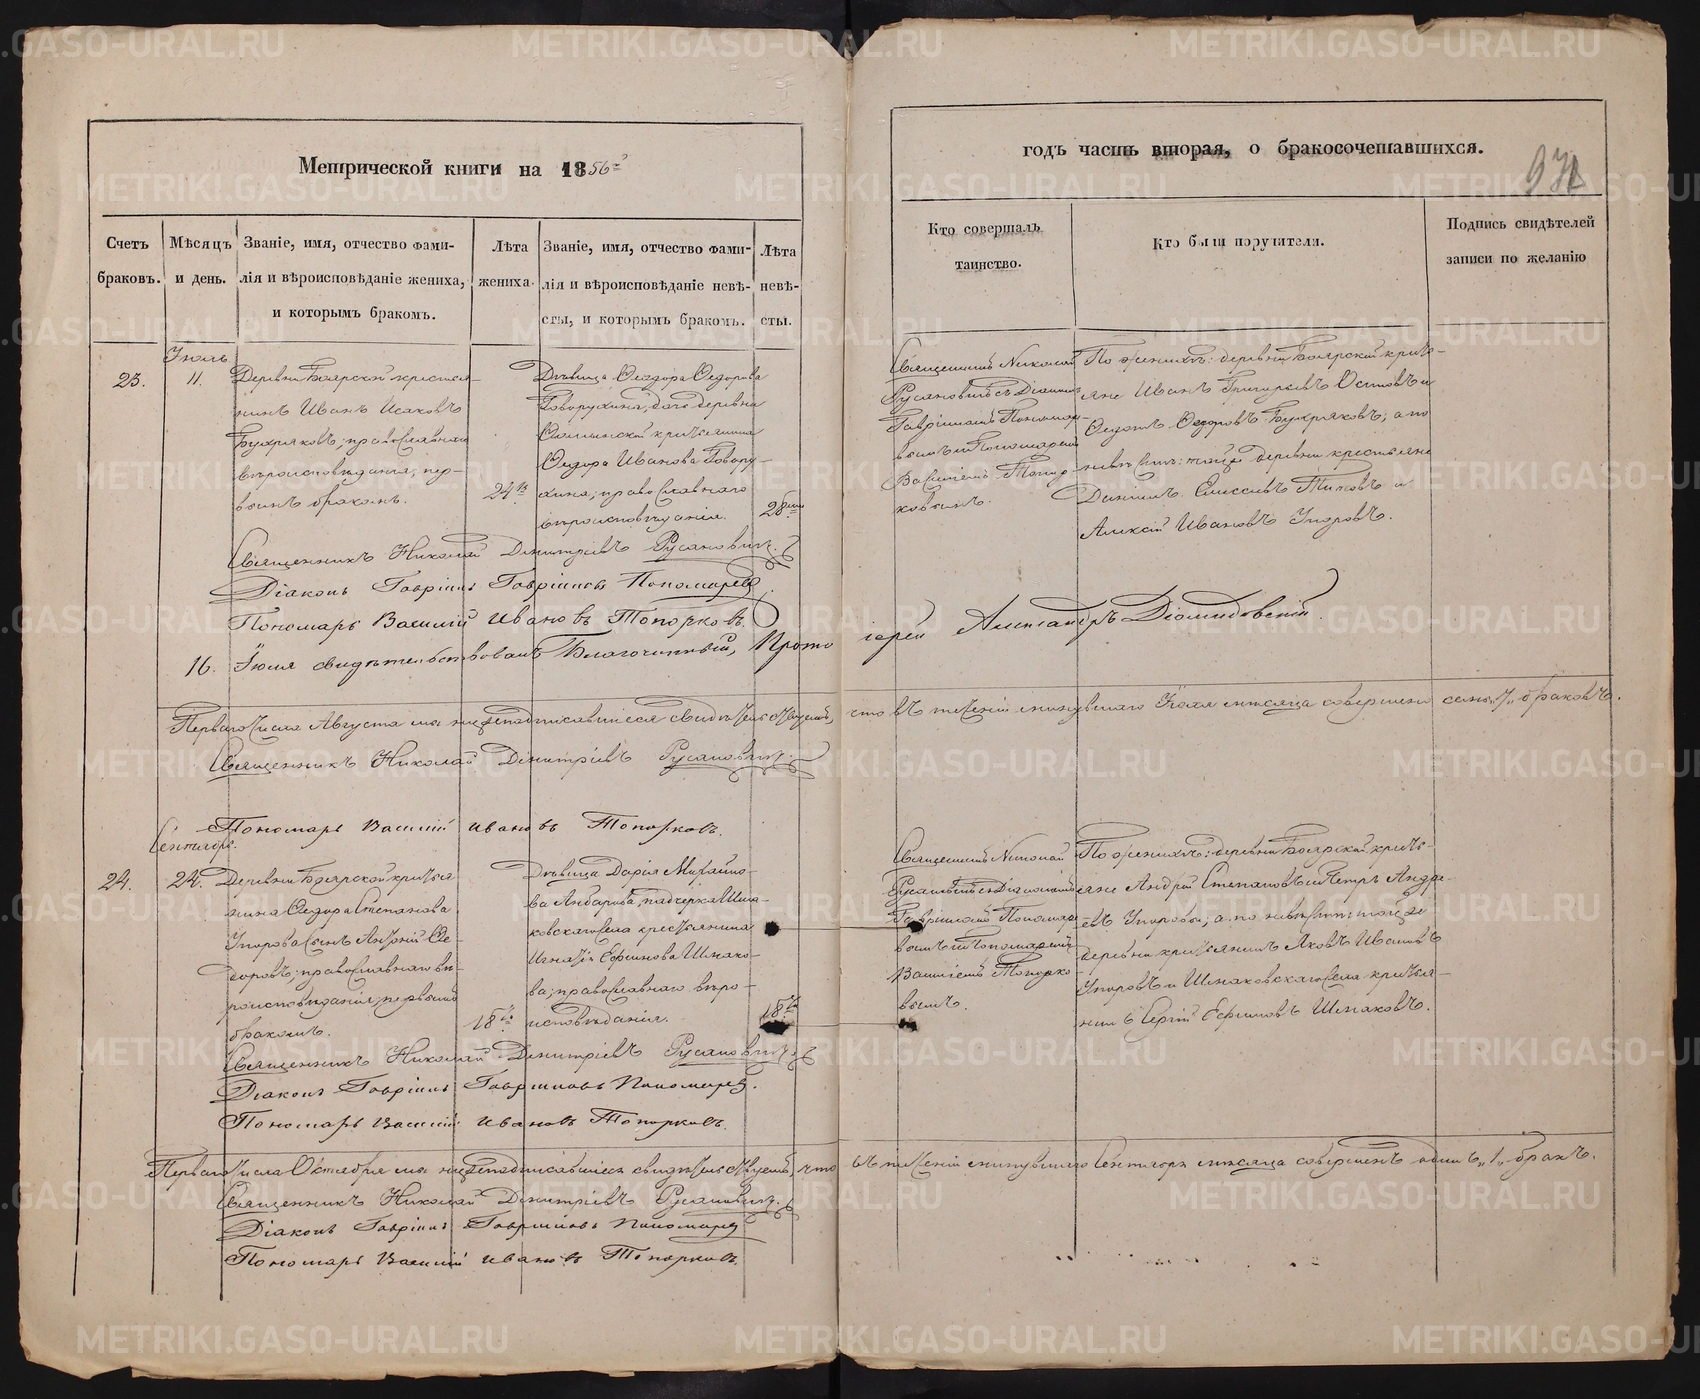 Метрической книги на 1856й
годъ часть вторая, о бракосочетавшихся.
Счетъ
браковъ.
Мѣсяцъ
и день.
Званіе, имя, отчество фами-
лія и вѣроисповѣданіе жениха,
и которымъ бракомъ.
Лѣта
жениха.
Званіе, имя, отчество фами-
лія и вѣроисповѣданіе невѣ-
сты, и которымъ бракомъ.
Лѣта
невѣ-
сты.
Кто совершалъ
таинство.
Кто были поручители.
Подпись свидѣтелей
записи по желанію
23.
Іюль
11.
Деревни Боярской крестья-
нинъ Иванъ Исаковъ
Бухряковъ, православнаго
вѣроисповѣданія, пер-
вымъ бракомъ.
24
Дѣвица Ѳеодора Ѳедорова
Говорухина, дочь деревни
крестьянина
Ѳедора Иванова Говору-
хина, православнаго
вѣроисповѣданія.
28
Священникъ Николай
Русановичъ съ Діакономъ
Гавріиломъ Пономаре-
вымъ и Пономаремъ
Василіемъ Топор-
ковымъ.
По женихѣ: деревни Боярской кресть-
яне Иванъ Григорьевъ и
Ѳедотъ Ѳедоровъ Бухряковъ; а по
невѣстѣ: тойже деревни крестьяне
Даніилъ Елисеевъ Титовъ и
Алексій Ивановъ Упоровъ.
Священникъ Николай Димитріевъ Русановичъ.
Діаконъ Гавріилъ Гавріиловъ Пономаревъ
Пономарь Василій Ивановъ Топорковъ.
16. Іюля свидѣтельствовалъ Благочинный, Прото іерей Александръ Діомидовскій.
Перваго числа Августа мы нижеподписавшіеся свидѣтельствуемъ, что въ теченіи минувшаго Іюля мѣсяца совершено семь "7" браковъ.
Священникъ Николай Димитріевъ Русановичъ.
Пономарь Василій Ивановъ Топорковъ.
Сентябрь.
24.
24.
Деревни Боярской крестья-
нина Ѳедора Степанова
Упорова сынъ Антоній Ѳе-
доровъ, православнаго вѣ-
роисповѣданія, первымъ
бракомъ.
18
Дѣвица Дарія Михайло-
ва Анбарова, падчерка Шма-
ковскаго села крестьянина
Игнатія Ефимова Шмако-
ва, православнаго вѣро-
исповѣданія.
18
Священникъ Николай
Русановичъ съ Діакономъ
Гавріиломъ Пономаре-
вымъ и Пономаремъ
Василіемъ Топорко-
вымъ.
По женихѣ: деревни Боярской кресть-
яне Андрей Степановъ и Петръ Андре-
евъ Упоровы; а по невѣстѣ: тойже
деревни крестьянинъ Яковъ Ивановъ
Упоровъ и Шмаковскаго села крестья-
нинъ Сергій Ефимовъ Шмаковъ.
Священникъ Николай Димитріевъ Русановичъ
Діаконъ Гавріилъ Гавріиловъ Пономаревъ.
Пономарь Василій Ивановъ Топорковъ.
Перваго числа Октября мы нижеподписавшіеся свидѣтельствуемъ, что въ теченіи минувшаго Сентября мѣсяца совершенъ одинъ "1" бракъ.
Священникъ Николай Димитріевъ Русановичъ.
Діаконъ Гавріилъ Гавріиловъ Пономаревъ
Пономарь Василій Ивановъ Топорковъ.
METRIKI.GASO-URAL.RU